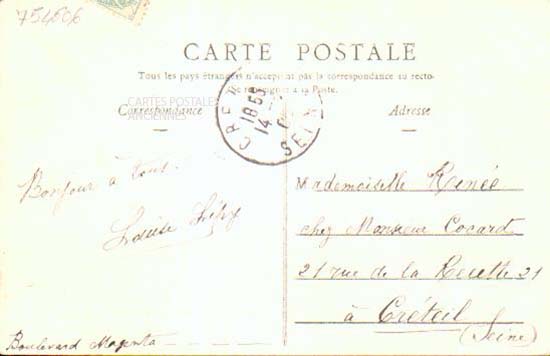 754506
CARTE POSTALE
Tous les pays étrangers n'acceptent pas la correspondance au recto-
se renseigner à la Poste.
CARTES POSTALES
ANCIENNES
Correspondance
Adresse
18 53
14
SEINE
Bonjour à tous.
Louise
Mademoiselle Renée
chez Monsieur Cocard
21 rue de la Recette 21
à Créteil
(Seine)
Boulevard Magenta